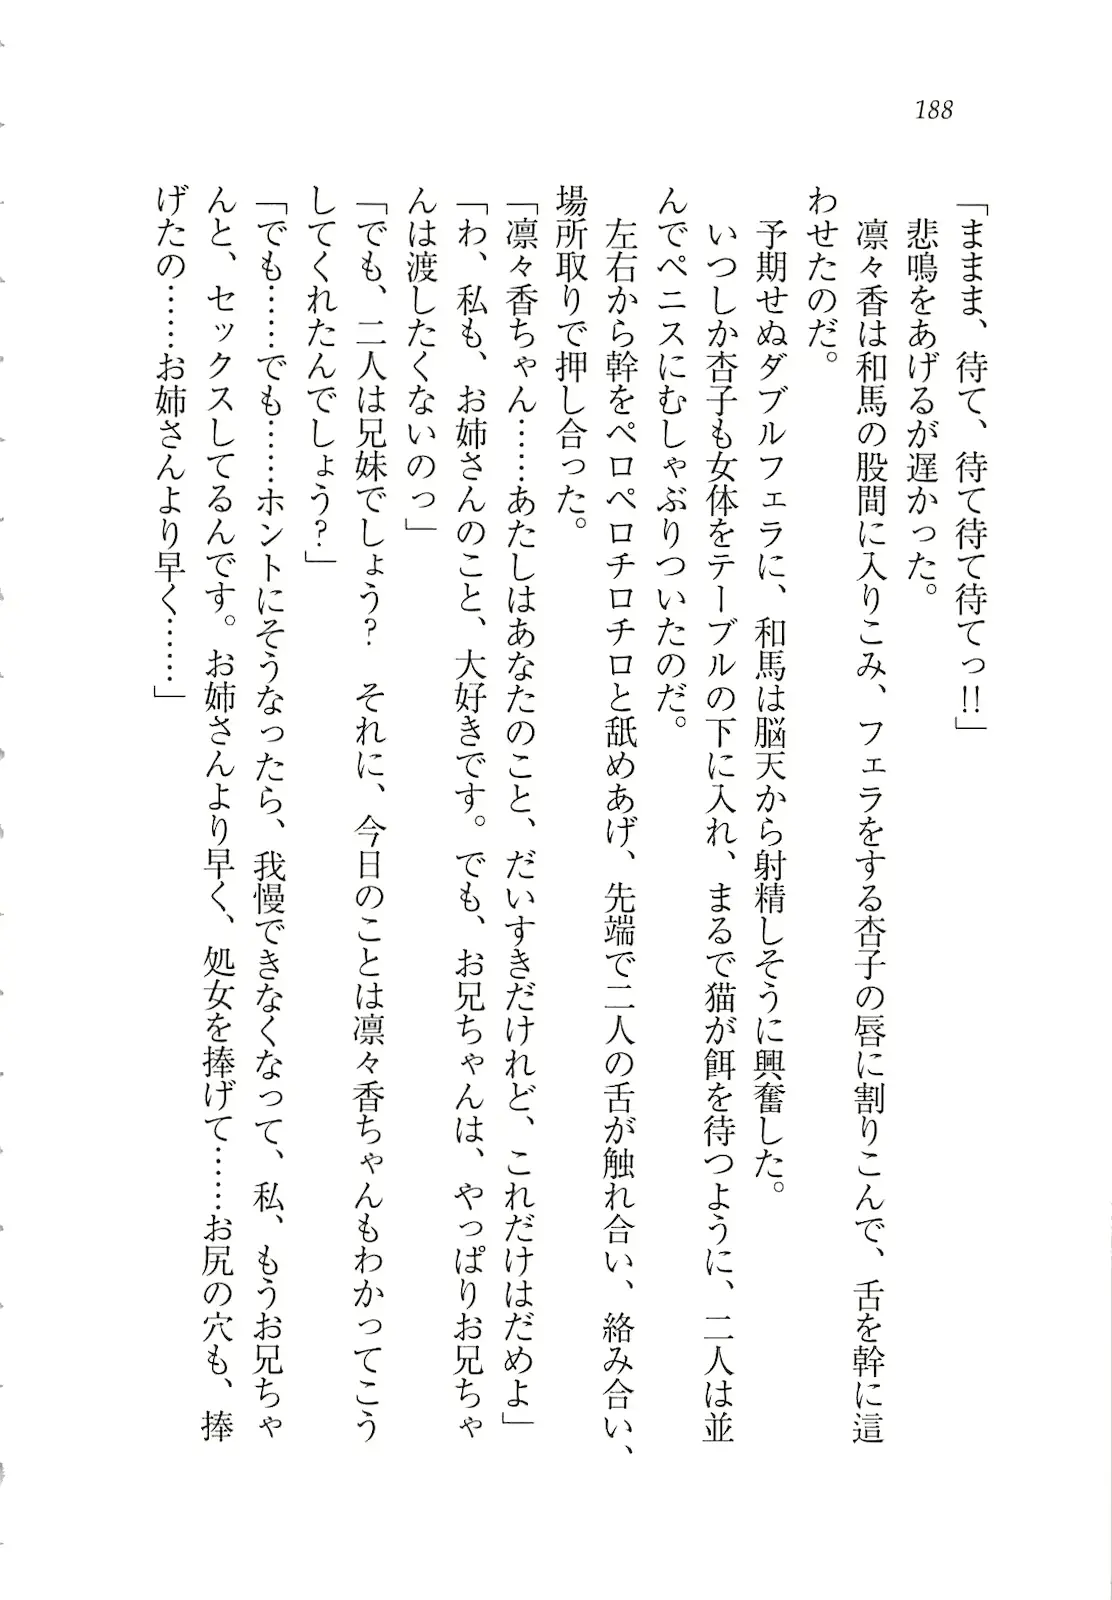 188
「ままま、待て、待て待て待てっ!!」
悲鳴をあげるが遅かった。
凛々香は和馬の股間に入りこみ、フェラをする杏子の唇に割りこんで、舌を幹に這
わせたのだ。
予期せぬダブルフェラに、和馬は脳天から射精しそうに興奮した。
いつしか杏子も女体をテーブルの下に入れ、まるで猫が餌を待つように、二人は並
んでペニスにむしゃぶりついたのだ。
左右から幹をペロペロチロチロと舐めあげ、先端で二人の舌が触れ合い、絡み合い、
場所取りで押し合った。
「凛々香ちゃん……あたしはあなたのこと、だいすきだけれど、これだけはだめよ」
「わ、私も、お姉さんのこと、大好きです。でも、お兄ちゃんは、やっぱりお兄ちゃ
んは渡したくないのっ」
「でも、二人は兄妹でしょう?　それに、今日のことは凛々香ちゃんもわかってこう
してくれたんでしょう?」
「でも……でも……ホントにそうなったら、我慢できなくなって、私、もうお兄ちゃ
んと、セックスしてるんです。お姉さんより早く、処女を捧げて……お尻の穴も、捧
げたの……お姉さんより早く……」